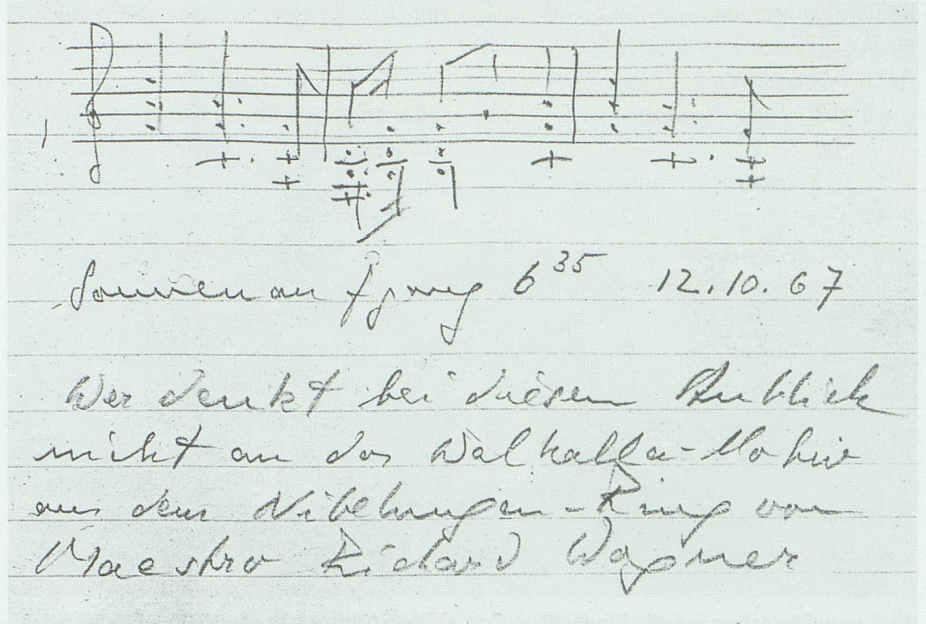 Sonnenaufgang 6³⁵ 12.10.67
Wer denkt bei diesem Anblick
nicht an das Walhalla-Motiv
aus dem Nibelungen-Ring von
Maestro Richard Wagner